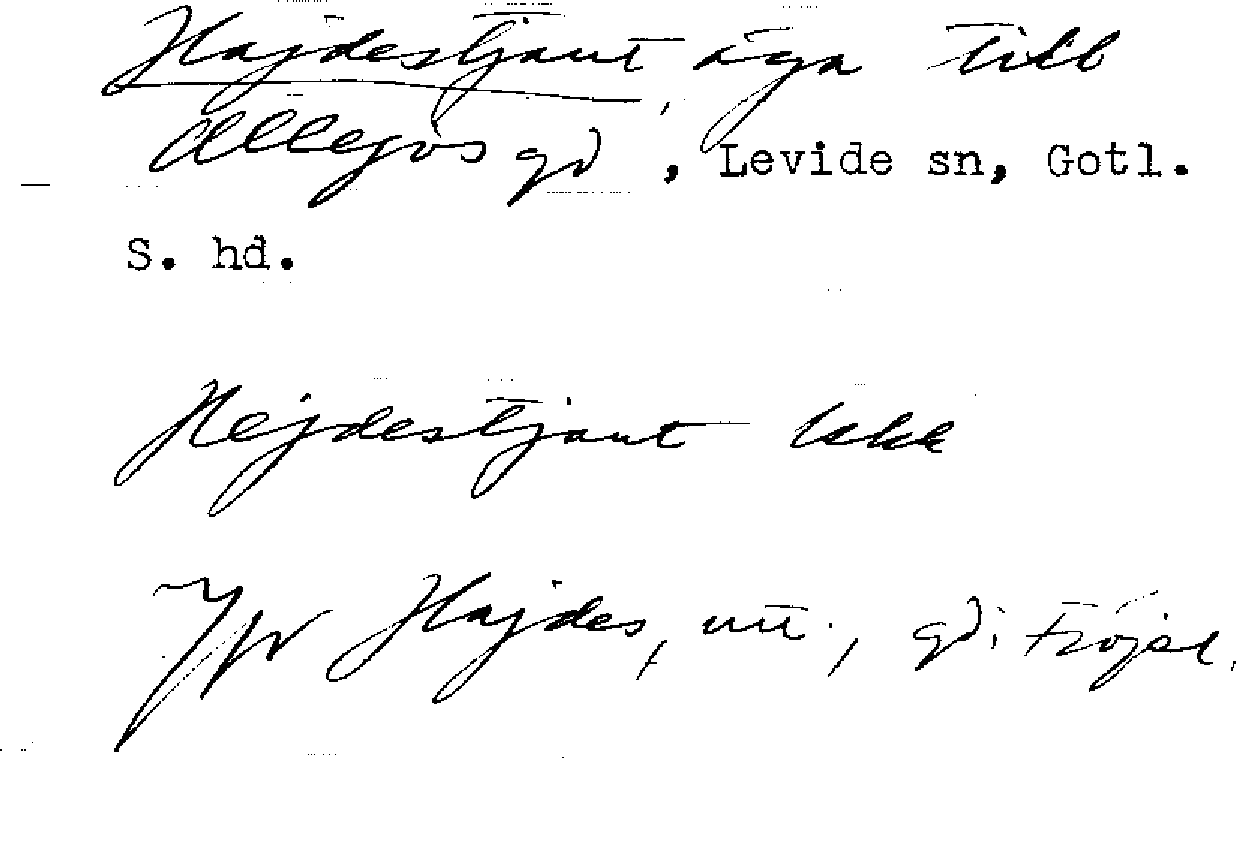 Hajdestjaut, äga till
Allegvs gd, Levide sn, Gotl.
S. hd.
Hejdestjaut
Jfr Hajdes, utt., gd i Fröjel.